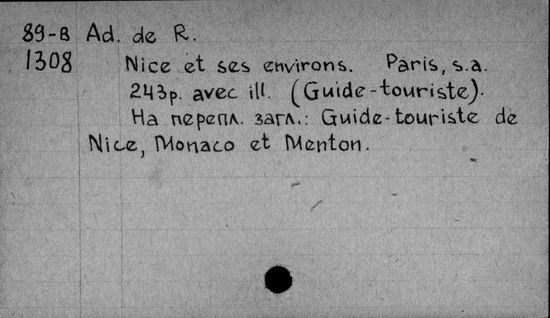 89-В Ad. de R.
1308 Nice et ses environs. Paris, s.a.
243p. avec ill. (Guide-touriste).
На перепл. загл.: Guide-touriste de
Nice, Monaco et Menton.